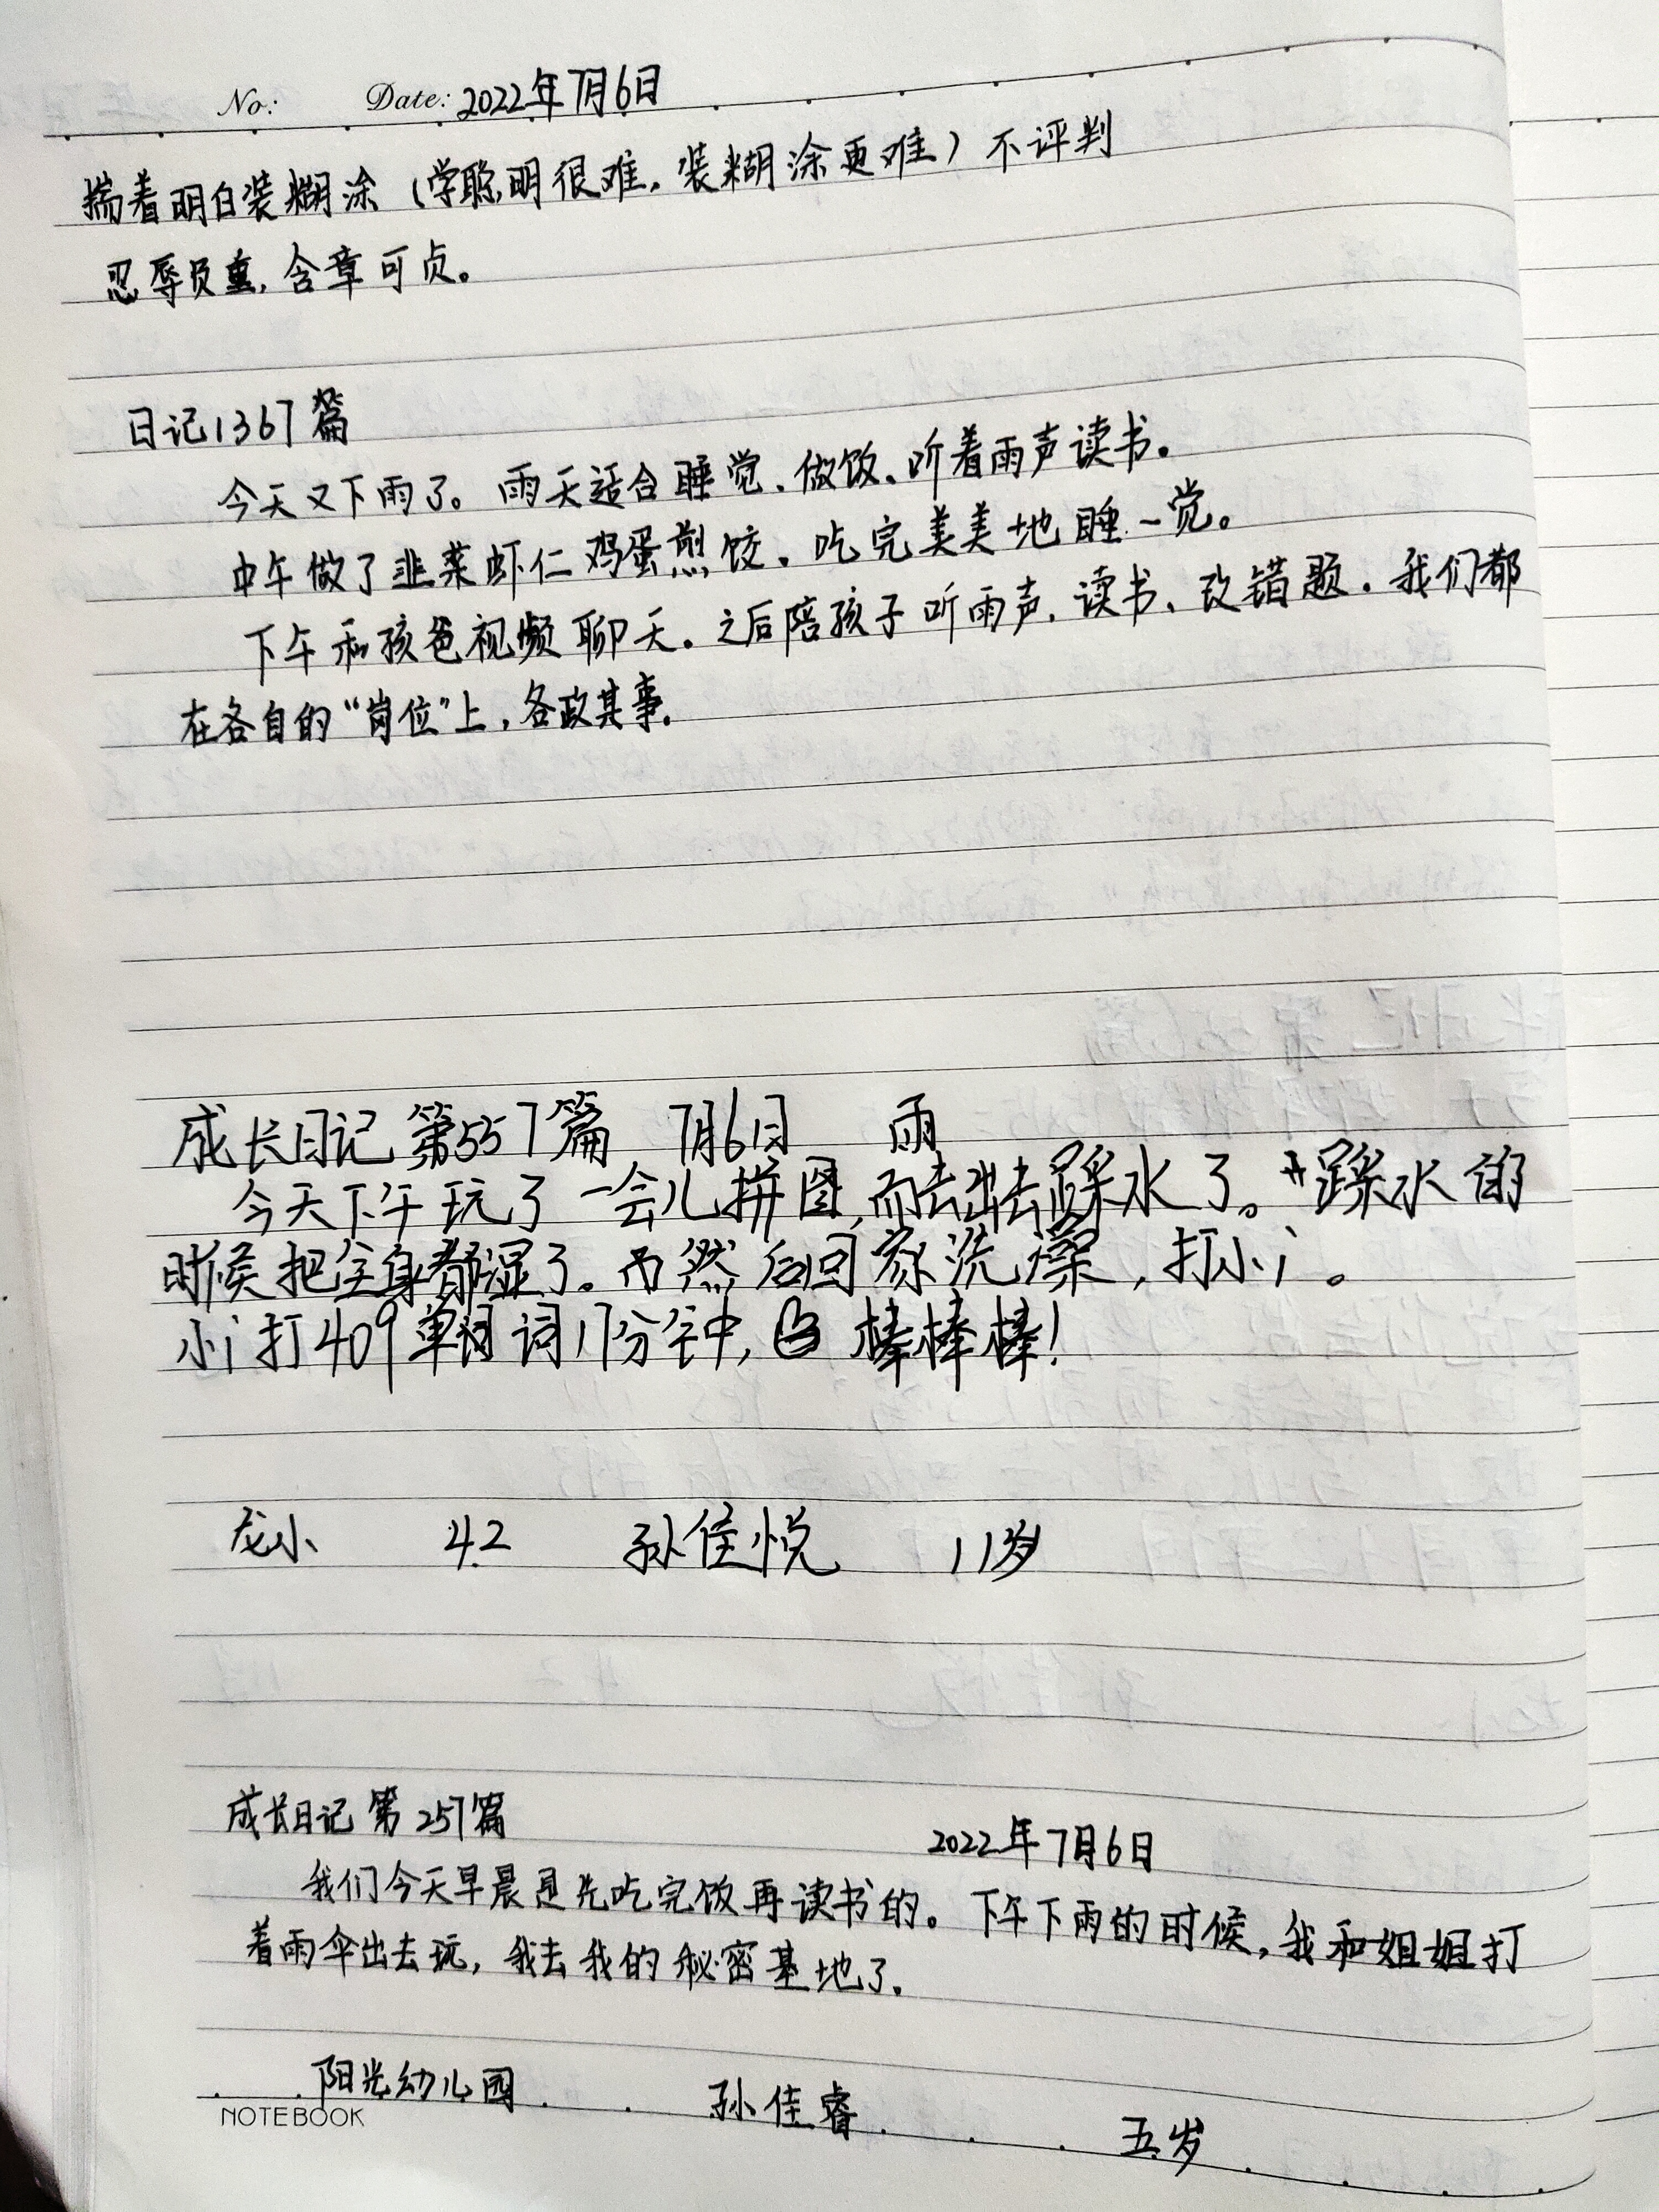 No: Date: 2022年7月6日
揣着明白装糊涂（学聪明很难，装糊涂更难）不评判
忍辱负重，含章可贞。
日记1367篇
今天又下雨了。雨天适合睡觉、做饭、听着雨声读书。
中午做了韭菜虾仁鸡蛋煎饺，吃完美美地睡一觉。
下午和孩爸视频聊天。之后陪孩子听雨声，读书、改错题。我们都
在各自的“岗位”上，各政其事。
成长日记 第557篇 7月6日 雨
今天下午玩了一会儿拼图，而去出去踩水了。踩水的
时候把全身都湿了。而然后回家洗澡，打小i。
小i打409单词词17分钟，棒棒棒！
龙小 4.2 孙佳悦 11岁
成长日记 第257篇
2022年7月6日
我们今天早晨是先吃完饭再读书的。下午下雨的时候，我和姐姐打
着雨伞出去玩，我去我的秘密基地了。
阳光幼儿园 孙佳睿 五岁
NOTEBOOK